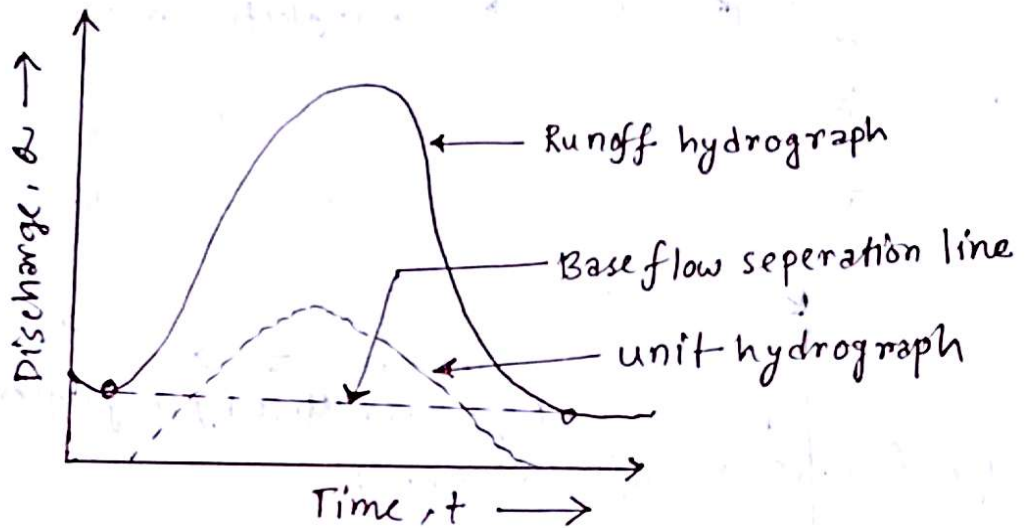 Discharge, Q →
Runoff hydrograph
Base flow seperation line
unit hydrograph
Time, t →